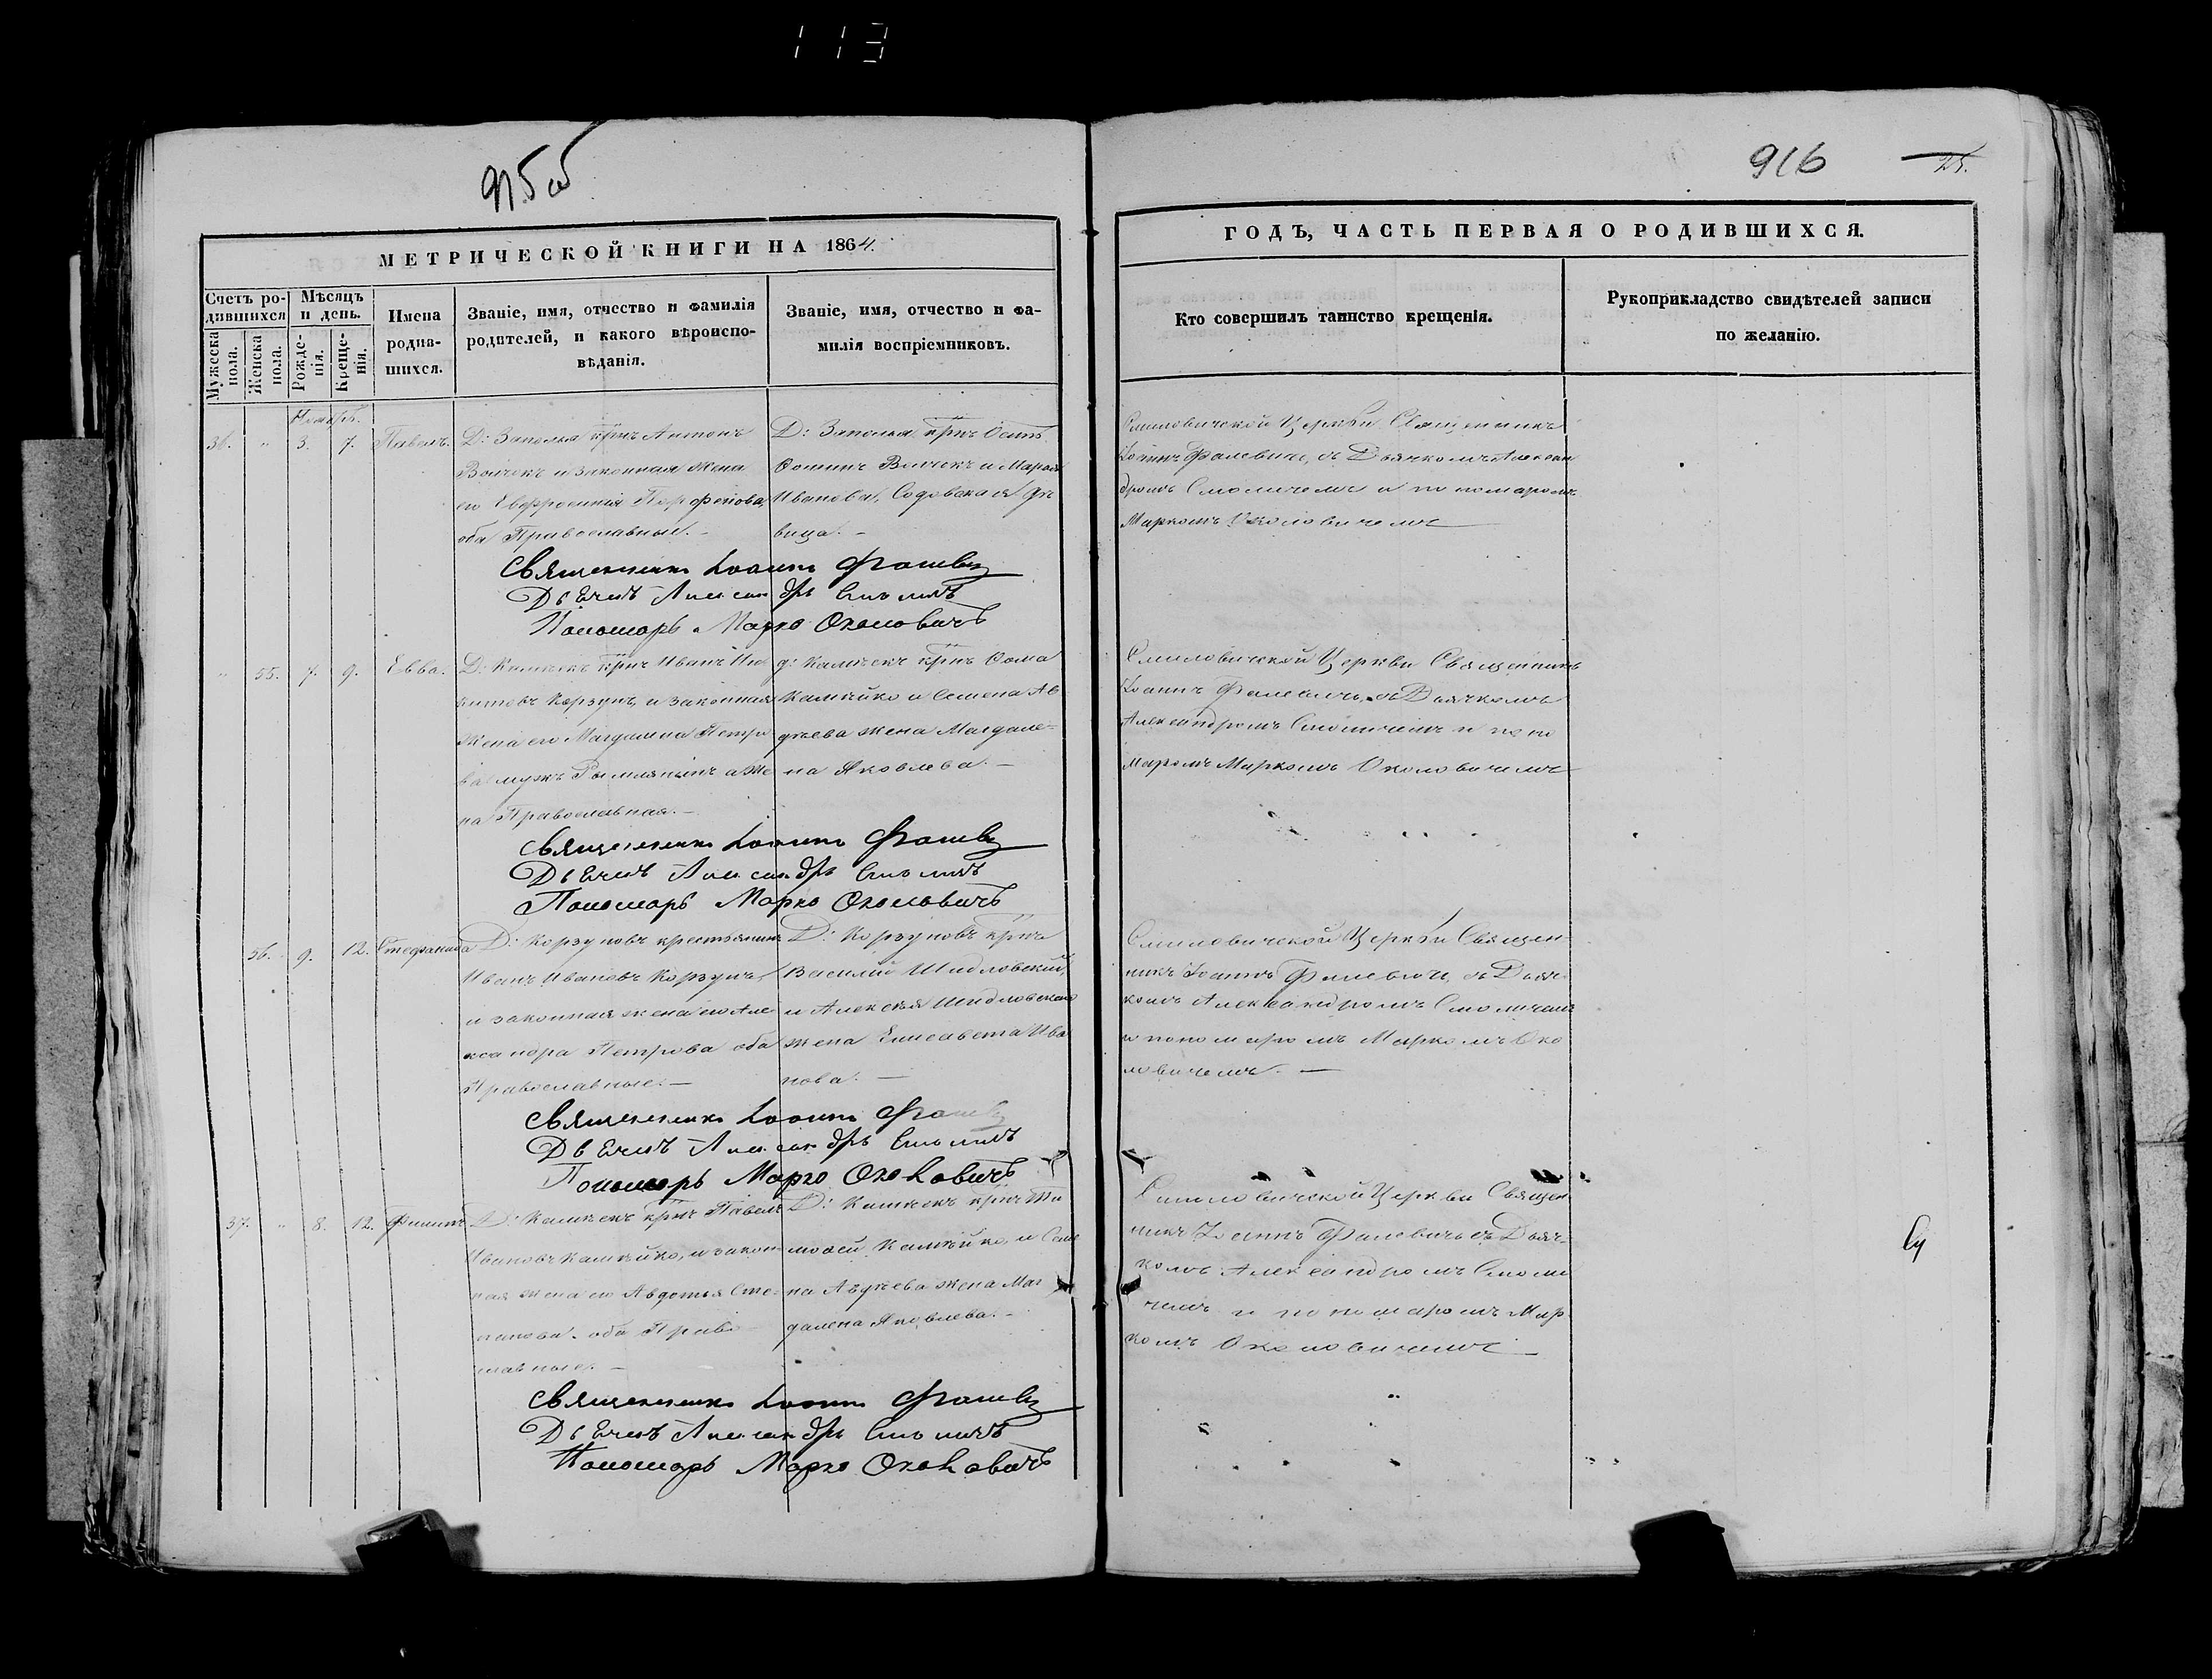 113
915об
916
25.
МЕТРИЧЕСКОЙ КНИГИ НА 1864.
Счетъ родившихся
Мѣсяцъ и день.
Мужеска пола.
Женска пола.
Рожденія.
Крещенія.
Имена родившихся.
Званіе, имя, отчество и фамилія родителей, и какого вѣроисповѣданія.
Званіе, имя, отчество и фамилія воспріемниковъ.
36. " 5. 7. Павелъ.
Д: Заполья крнъ Антонъ
Войчекъ и законная жена
его Евфросинія Порфенова,
оба Православные. –
Д: Заполья крнъ
Фоминъ и Марья
Ивановна Садовская дѣ
вица. –
Священникъ Іоаннъ Фалевичъ
Дьячекъ Александръ Смоличъ
Пономарь Марко Околовичъ
" 55. 7. 9. Евва.
крнъ Иванъ Ни
китовъ Корзунъ, и законная
жена его Магдалина Петро
ва мужъ Римлянинъ а же
на Православная. –
крнъ Фома
Калѣйко и Семена Ав
дѣева жена Магдале-
на Яковлева. –
Священникъ Іоаннъ Фалевичъ
Дьячекъ Александръ Смоличъ
Пономарь Марко Околовичъ
56. 9. 12. Стефанида
Д: Корзуновъ крестьянинъ
Иванъ Ивановъ Корзунъ,
и законная жена его Але
ксандра Петрова оба
Православные. –
Д: Корзуновъ крнъ
Василій Шидловскій,
и Алексѣя Шидловскаго
жена Елисавета Ива
нова. –
Священникъ Іоаннъ Фалевичъ
Дьячекъ Александръ Смоличъ
Пономарь Марко Околовичъ
37. " 8. 12. Филипъ
крнъ Павелъ
Ивановъ Калѣйко, и закон
ная жена его Авдотья Сте-
панова. оба Право
славные. –
крнъ Ти
мофей Калѣйко, и Семе
на Авдѣева жена Маг
далена Яковлева. –
Священникъ Іоаннъ Фалевичъ
Дьячекъ Александръ Смоличъ
Пономарь Марко Околовичъ
ГОДЪ, ЧАСТЬ ПЕРВАЯ О РОДИВШИХСЯ.
Кто совершилъ таинство крещенія.
Рукоприкладство свидѣтелей записи
по желанію.
Смиловичской Церкви Священникъ
Іоаннъ Фалевичъ, съ Дьячкомъ Алексан
дромъ Смоличемъ и пономаромъ
Маркомъ Околовичемъ
Смиловичской Церкви Священникъ
Іоаннъ Фалевичъ, съ Дьячкомъ
Александромъ Смоличемъ и поно
маромъ Маркомъ Околовичемъ
Смиловичской Церкви Священ
никъ Іоаннъ Фалевичъ, съ Дьяч
комъ Александромъ Смоличемъ
и пономаромъ Маркомъ Око
ловичемъ. –
Смиловичской Церкви Священ
никъ Іоаннъ Фалевичъ съ Дьяч-
комъ Александромъ Смоли
чемъ и пономаромъ Мар
комъ Околовичемъ